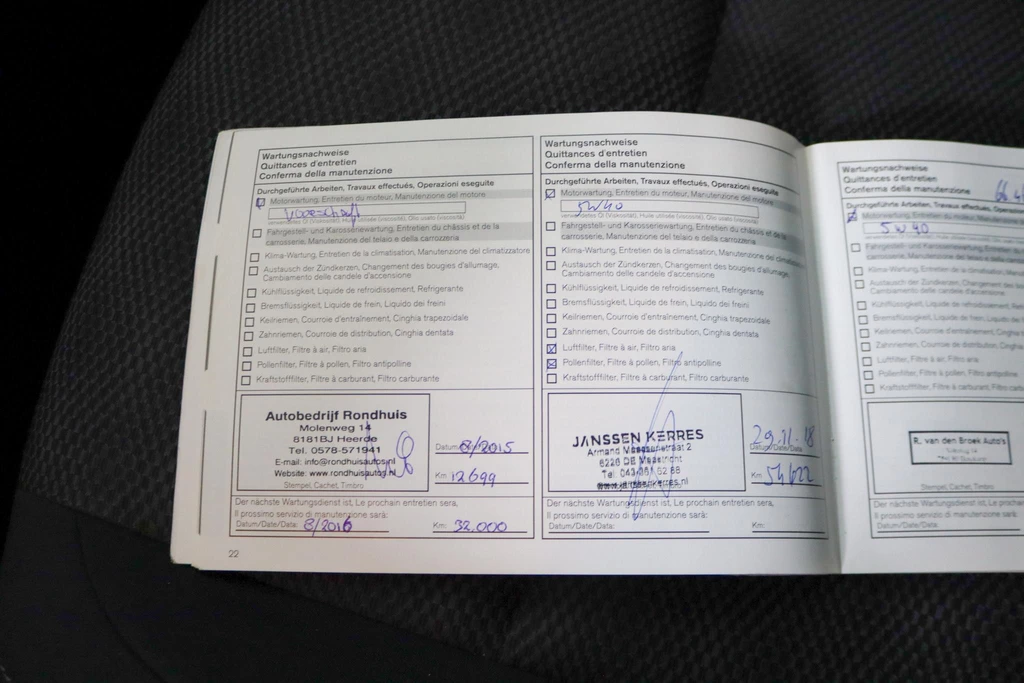 Wartungsnachweise
Quittances d'entretien
Conferma della manutenzione
Durchgeführte Arbeiten, Travaux effectués, Operazioni eseguite
Motorwartung, Entretien du moteur, Manutenzione del motore
verwendetes Öl (Viskosität), Huile utilisée (viscosité), Olio usato (viscosità)
Fahrgestell- und Karosseriewartung, Entretien du châssis et de la
carrosserie, Manutenzione del telaio e della carrozzeria
Klima-Wartung, Entretien de la climatisation, Manutenzione del climatizzatore
Austausch der Zündkerzen, Changement des bougies d'allumage,
Cambiamento delle candele d'accensione
Kühlflüssigkeit, Liquide de refroidissement, Refrigerante
Bremsflüssigkeit, Liquide de frein, Liquido dei freini
Keilriemen, Courroie d'entraînement, Cinghia trapezoidale
Zahnriemen, Courroie de distribution, Cinghia dentata
Luftfilter, Filtre à air, Filtro aria
Pollenfilter, Filtre à pollen, Filtro antipolline
Kraftstofffilter, Filtre à carburant, Filtro carburante
Autobedrijf Rondhuis
Molenweg 14
8181BJ Heerde
Tel. 0578-571941
E-mail: info@rondhuisautos.nl
Website: www.rondhuisautos.nl
Stempel, Cachet, Timbro
Datum 8/2015
Km 12699
Der nächste Wartungsdienst ist, Le prochain entretien sera,
Il prossimo servizio di manutenzione sarà:
Datum/Date/Data: 8/2016 Km: 32.000
22
Wartungsnachweise
Quittances d'entretien
Conferma della manutenzione
Durchgeführte Arbeiten, Travaux effectués, Operazioni eseguite
Motorwartung, Entretien du moteur, Manutenzione del motore
5W40
verwendetes Öl (Viskosität), Huile utilisée (viscosité), Olio usato (viscosità)
Fahrgestell- und Karosseriewartung, Entretien du châssis et de la
carrosserie, Manutenzione del telaio e della carrozzeria
Klima-Wartung, Entretien de la climatisation, Manutenzione del
Austausch der Zündkerzen, Changement des bougies d'allumage,
Cambiamento delle candele d'accensione
Kühlflüssigkeit, Liquide de refroidissement, Refrigerante
Bremsflüssigkeit, Liquide de frein, Liquido dei freini
Keilriemen, Courroie d'entraînement, Cinghia trapezoidale
Zahnriemen, Courroie de distribution, Cinghia dentata
Luftfilter, Filtre à air, Filtro aria
Pollenfilter, Filtre à pollen, Filtro antipolline
Kraftstofffilter, Filtre à carburant, Filtro carburante
JANSSEN KERRES
2
6226 DE Maastricht
Tel
29-11-18
Datum/Date/Data
Km 54622
Der nächste Wartungsdienst ist, Le prochain entretien sera,
Il prossimo servizio di manutenzione sarà:
Datum/Date/Data: Km:
Wartungsnachweise
Quittances d'entretien
Conferma della manutenzione
Durchgeführte Arbeiten, Travaux effectués, Operazioni
Motorwartung, Entretien du moteur,
5W40
Fahrgestell- und Karosseriewartung, Entretien
carrosserie, Manutenzione del telaio e della
Klima-Wartung, Entretien de la climatisation,
Austausch der Zündkerzen, Changement des
Cambiamento delle candele d'accensione
Kühlflüssigkeit, Liquide de refroidissement,
Bremsflüssigkeit, Liquide de frein, Liquido
Keilriemen, Courroie d'entraînement, Cinghia
Zahnriemen, Courroie de distribution, Cinghia
Luftfilter, Filtre à air, Filtro aria
Pollenfilter, Filtre à pollen, Filtro antipolline
Kraftstofffilter, Filtre à carburant, Filtro
R. van den Broek Auto's
Stempel, Cachet, Timbro
Der nächste Wartungsdienst ist, Le prochain
Il prossimo servizio di manutenzione sarà:
Datum/Date/Data: